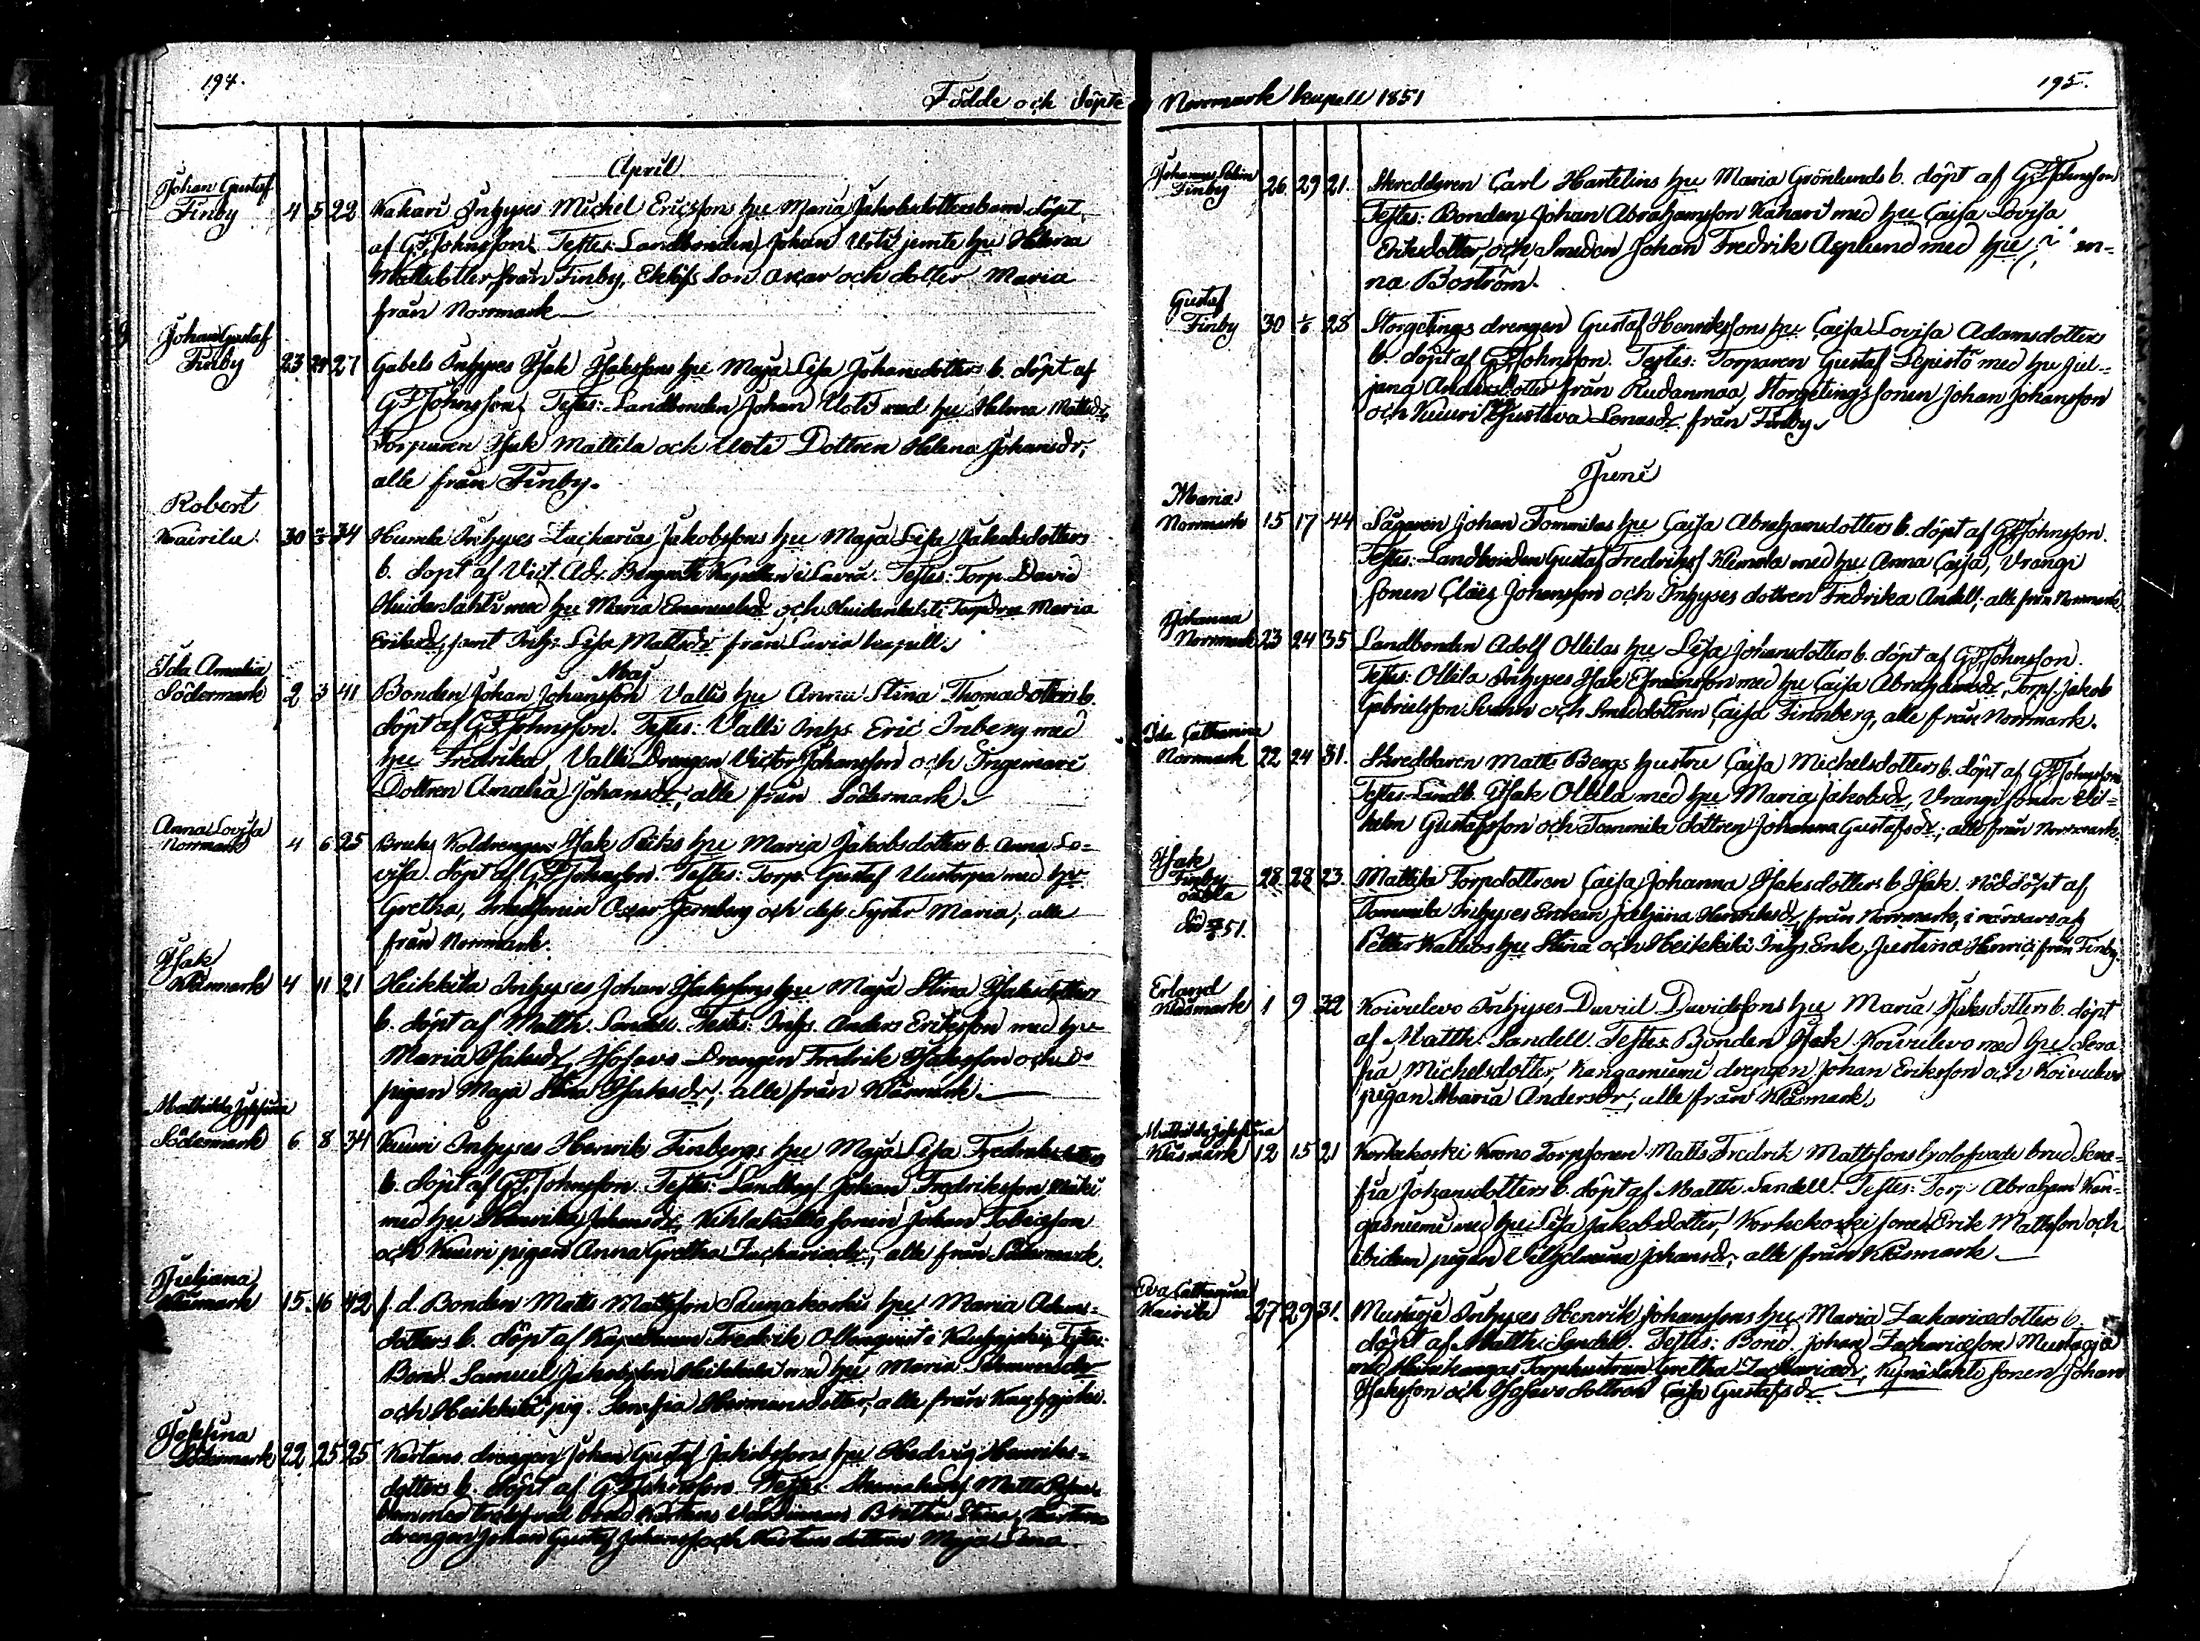 194.
Födde och döpte
April
Johan Gustaf
Finby 4 5 22 Kakari Inhyses Michel Ericssons hu Maria Jakobsdotters barn döpt
af G F Johnsson. Testes: Landbonden Johan Uoti jemte hu Helena
Mattsdotter från Finby, Son Oscar och dotter Maria
från Norrmark
Johan Gustaf
Finby 23 24 27 Gabels Inhyses Isak Isakssons hu Maja Lisa Johansdotters b. döpt af
G F Johnsson, Testes: Landbonden Johan Uoti med hu Helena Mattsdr
Torparen Isak Mattila och Uoti Dottren Helena Johansdr,
alle från Finby.
Robert
Kairila 30 34 Inhyses Zacharias Jakobssons hu Maja Lisa Jakobsdotters
b. döpt af Vict. Adj. Bergroth Kapellan i Lavia. Testes: Torp. David
med hu Maria Emanuelsdr och Maria
Eriksdr, samt Inh: Lisa Mattsdr från Lavia kapell.
Maj
Ida Amalia
Södermark 2 3 41 Bonden Johan Johansson Vallis hu Anna Stina Thomasdotters b.
döpt af G F Johnsson. Testes: Valli Inhs Eric Inberg med
hu Fredrika, Valli Drengen Victor Johansson och Ingemari
Dottren Amalia Johansdr, alle från Södermark.
Anna Lovisa
Norrmark 4 6 25 Bruks Koldrengen Isak hu Maria Jakobsdotters b. Anna Lo-
visa. döpt af G F Johnsson. Testes: Torp. Gustaf Uusitorpa med hu
Gretha, Smedsonen Oscar Jernberg och dess Syster Maria; alle
från Norrmark.
Isak
Klåsmark 4 11 21 Heikkilä Inhyses Johan Isakssons hu Maja Stina Isaksdotters
b. döpt af Matth. Sandell. Testes: Inhs. Anders Eriksson med hu
Maria Isaksdr, Isosavo Drengen Fredrik Isaksson och Do
pigan Maja Stina Isaksdr, alle från Klåsmark.
Mathilda Josefina
Södermark 6 8 34 Kuuri Inhyses Henrik Finbergs hu Maja Lisa Fredriksdotters
b. döpt af G F Johnsson. Testes: Johan Fredriksson
med hu Henrika Johansdr, sonen Johan Tobiasson
och Kuuri pigan Anna Gretha Zachariedr, alle från Södermark.
Juliana
Klåsmark 15 16 42 f. d. Bonden Matts Mattsson Saunakoskis hu Maria Adams-
dotters b. döpt af Kapellanen Fredrik Ollonqvist i Kankaanpää. Testes:
Bond. Samuel Jakobsson Heikkilä med hu Maria
och Heikkilä pig. Serafia Hermansdotter, alle från
Josefina
Södermark 22 25 25 Kertans drengen Johan Gustaf Jakobssons hu Hedvig Henriks-
dotters b. döpt af G F Johnsson. Testes: Matts
med trolofvade brud Stina, Kertans
drengen Johan Gustaf Johansson och Kertans dottren Maja Lena
195.
Norrmark kapell 1851
Johannes
Finby 26 29 21. Skreddaren Carl Hartelins hu Maria Grönlunds b. döpt af G F Johnsson
Testes: Bonden Johan Abrahamsson Kakari med hu Cajsa Lovisa
Eriksdotter, och Smeden Johan Fredrik Asplund med hu
na Boström.
Gustaf
Finby 30 28 Storgetings drengen Gustaf Henrikssons hu Cajsa Lovisa Adamsdotters
b. döpt af G F Johnsson. Testes: Torparen Gustaf Lepistö med hu Jul-
jana Andersdotter från Rudanmaa, Storgetings sonen Johan Johansson
och Kuuri Gustava Lenasdr från Finby.
Juni
Maria
Norrmark 15 17 44 Sågaren Johan Tommilas hu Cajsa Abrahamsdotters b. döpt af G F Johnsson.
Testes: Landbonden Gustaf Fredrikss Klemola med hu Anna Cajsa, Vrangi
sonen Claës Johansson och Inhyses dottren Fredrika Andell; alle från Norrmark.
Johanna
Norrmark 23 24 35 Landbonden Adolf Ollilas hu Lisa Johansdotters b. döpt af G F Johnsson.
Testes: Ollila Inhyses Isak Efraimsson med hu Cajsa Abrahamsdr, Torps. Jakob
Gabrielsson och Smeddottren Cajsa Finnberg, alle från Norrmark.
Ida Catharina
Norrmark 22 24 31. Skreddaren Matts Bergs hustru Cajsa Michelsdotters b. döpt af G F Johnsson
Testes: Landb. Isak Ollila med hu Maria Jakobsdr, Vrangi sonen Vil-
helm Gustafsson och Tommila dottren Johanna Gustafsdr; alle från Norrmark.
Isak
Finby
oäkta
död 51. 28 28 23. Mattila Torpdottren Cajsa Johanna Isaksdotters b. Isak. Nöddöpt af
Tommila Inhyses Enkan Juljana Henriksdr från Norrmark; i närvaro af
Petter Kallios hu Stina och Heikkilä Inhs Enk. Justina Henrics från Finby.
Erland
Klåsmark 1 9 32 Koivulevo Inhyses David Davidssons hu Maria Isaksdotters b. döpt
af Matth. Sandell. Testes: Bonden Isak Koivulevo med hu Sera-
fia Michelsdotter, Kangasniemi drengen Johan Eriksson och Koivulevo
pigan Maria Andersdr, alle från Klåsmark.
Mathilda Josefina
Klåsmark 12 15 21 Korkekoski Krono Torpsonen Matts Fredrik Mattssons trolofvade brud Sera-
fia Johansdotters b. döpt af Matth. Sandell. Testes: Torp. Abraham Kan-
gasniemi med hu Lisa Jakobsdotter, Korkekoski sonen Erik Mattsson och
ibidem pigan Vilhelmina Johansdr, alle från Klåsmark
Eva Catharina
Kairila 27 29 31. Mustaoja Inhyses Henrik Johanssons hu Maria Zachariædotters b.
döpt af Matth. Sandell. Testes: Bond. Johan Zachariæsson Mustaoja
med Torphustrun Gretha Zachariædr, Kynäslahti sonen Johan
Isaksson och Isosavo dottren Cajsa Gustafsdr